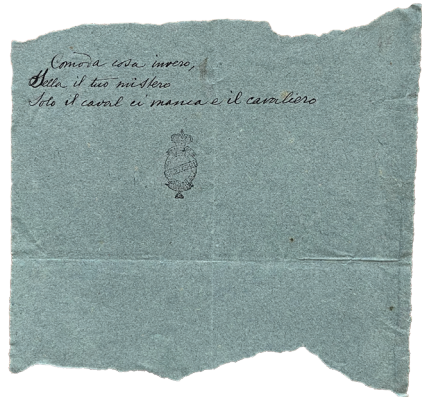 Comoda cosa invero,
Sella il tuo mistero
Solo il caval ci manca e il cavaliero